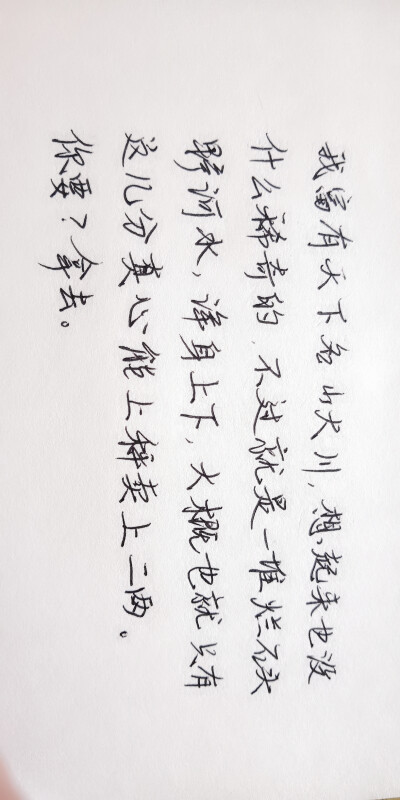 我富有天下名山大川，想起来也没
什么稀奇的，不过就是一堆烂石头
野河水，浑身上下，大概也就只有
这几分真心能上秤卖上二两。
你要？拿去。